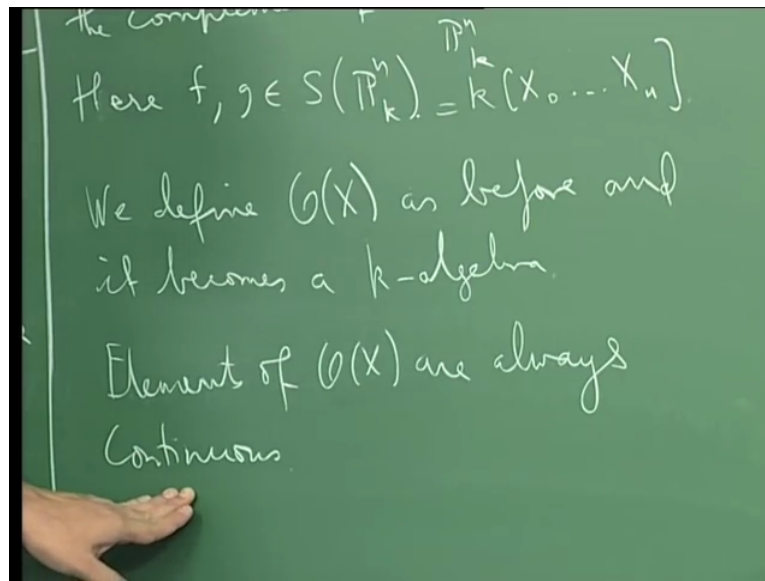 the
ℙⁿₖ
Here f, g ∈ S(ℙⁿₖ) = k[X₀ ... Xₙ].
We define 𝒪(X) as before and
it becomes a k-algebra.
Elements of 𝒪(X) are always
Continuous.